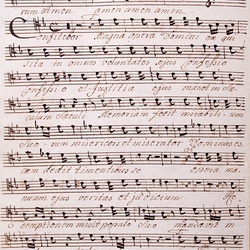 rum amen amen amen amen
Confitebor Magna opera Domini ex qui
sita in omnes voluntates ejus Confessio
Confessio et Justitia ejus manet in
culum saeculi Memoriam fecit mirabilium
suo rum misericors et miserator Dominus es
cam dedit timentibus se opera ma
nuum ejus veritas et judicium
emptionem misit populo suo mandavit in